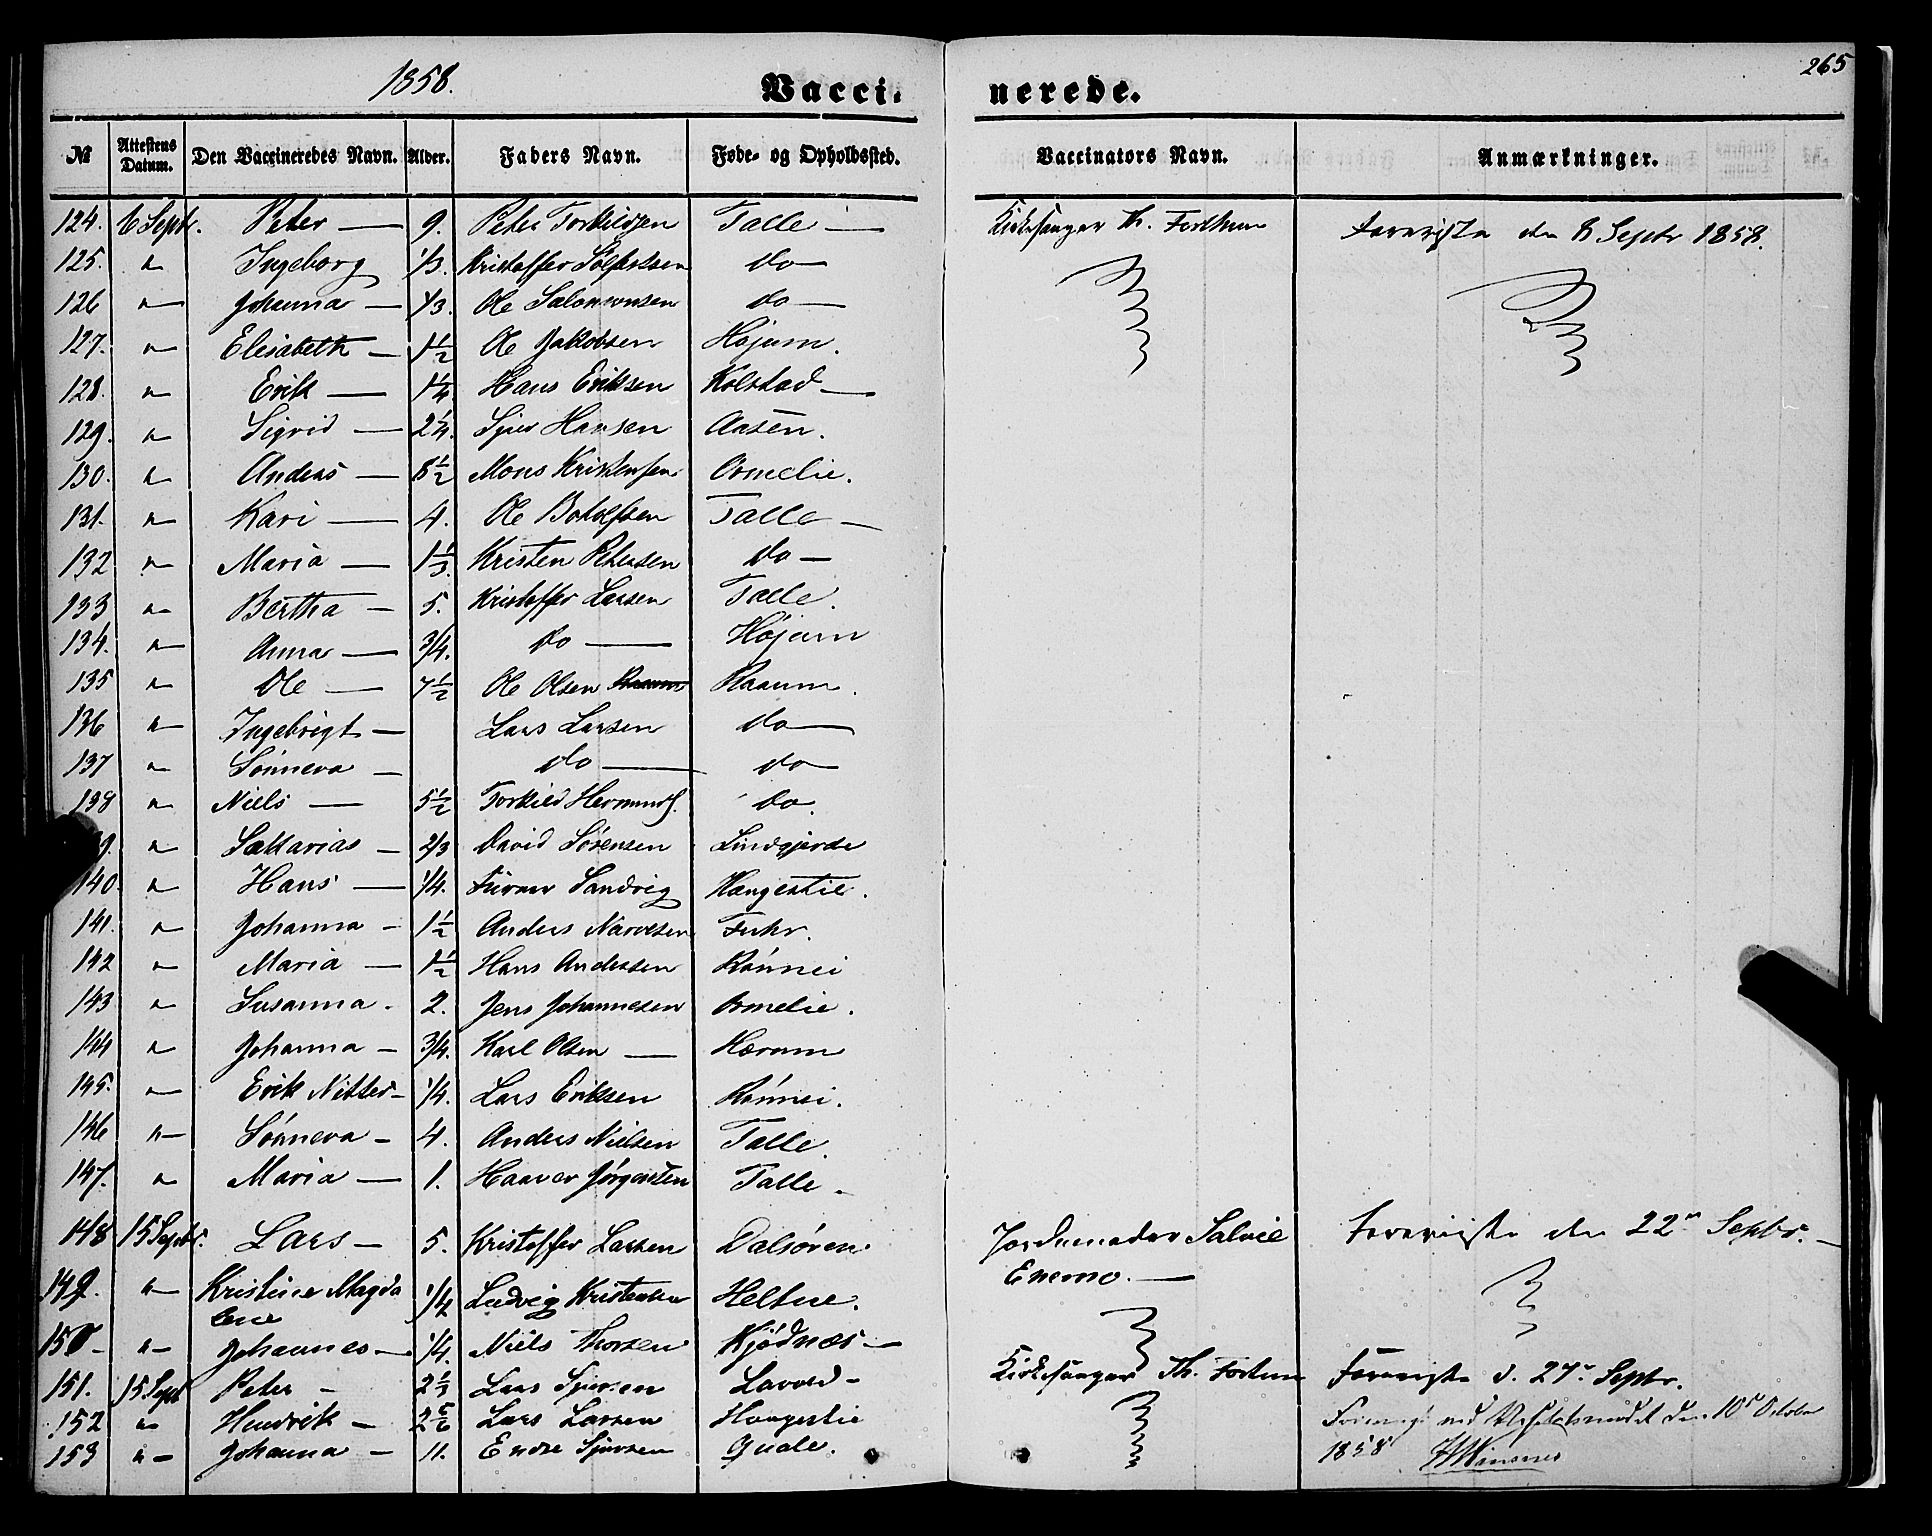 1858.
Vacci-
nerede.
265
№ Attestens Datum. Den Vaccineredes Navn. Alder. Faders Navn. Føde- og Opholdssted. Vaccinators Navn. Anmærkninger.
124. 6 Septr. Peter — 9. Peter Torkildsen Talle — Kirkesanger Th. Forthun foreviste den 8 Septr 1858.
125. " Ingeborg 1/3. Kristoffer do —
126 " Johanna — 1/3. Ole Salomonsen do —
127. " Elisabeth — 1 1/2 Ole Jakobsen Højum.
128. " Erik — 1 1/4 Hans Eriksen Kolstad —
129. " Sigrid — 2 1/4. Sjur Hansen Aasen.
130. " Anders — 8 1/2 Mons Kristensen Ormelie.
131. " Kari — 4. Ole Botolfsen Talle —
132 " Maria — 1 1/3. Kristen Petersen do —
133 " Bertha — 5. Kristoffer Larsen Talle.
134. " Anna — 3/4. do — Højum
135 " Ole — 7 1/2 Ole Olsen Raaum.
136 " Ingebrigt — Lars Larsen do —
137 " Sønneva — do — do
138 " Niels — 5 1/2 Torkild Hermunds. do.
139. " Sakarias — 2/3 David Sørensen Lindgjerde
140. " Hans — 1/4. Sandvig Haugestie.
141. " Johanna — 1 1/2 Anders Narvesen Fuhr.
142 " Maria — 1 1/2 Hans Andersen Rønnei
143 " Susanna. 2. Jens Johannesen Ormelie.
144 " Johanna — 3/4. Karl Olsen — Hærum
145. " Erik Nitter — 1/4. Lars Eriksen Rønnei.
146 " Sønneva — 4. Anders Nielsen Talle.
147. " Maria — 1. Haaver Jørgensen Talle.
148 15 Septr. Lars — 5. Kristoffer Larsen Dalsøren. Jordemoder Salvie foreviste den 22n Septbr. —
149. " Kristine Magda 1/4 Ludvig Kristensen Heltne. Enemo. —
lene
150 — " — Johannes — 1/4. Niels Thorsen Kjødnæs —
151. 15 Sept Peter — 2 1/3 Lars Sjursen Lavold — Kirkesanger Th. Fortun Foreviste d. 27. Septr.
152 " Hendrik — 2 5/6 Lars Larsen Haugestie ved den 10d October
153 " — Johanna — 11. Endre Sjursen Quale. 1858